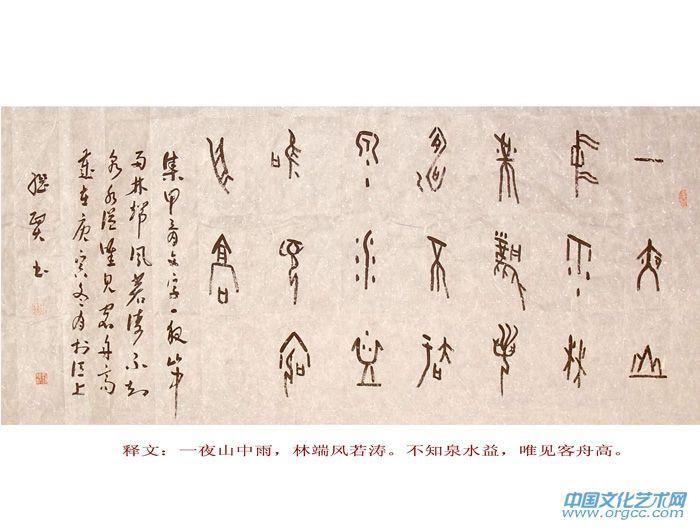 一夜山
中雨林
端风若
涛不知
泉水益
唯见客
舟高
集甲骨文字一夜山中
雨林端风若涛不知
泉水益唯见客舟高
岁在庚寅冬月於上
贤书
释文：一夜山中雨，林端风若涛。不知泉水益，唯见客舟高。
中国文化艺术网
www.orgcc.com